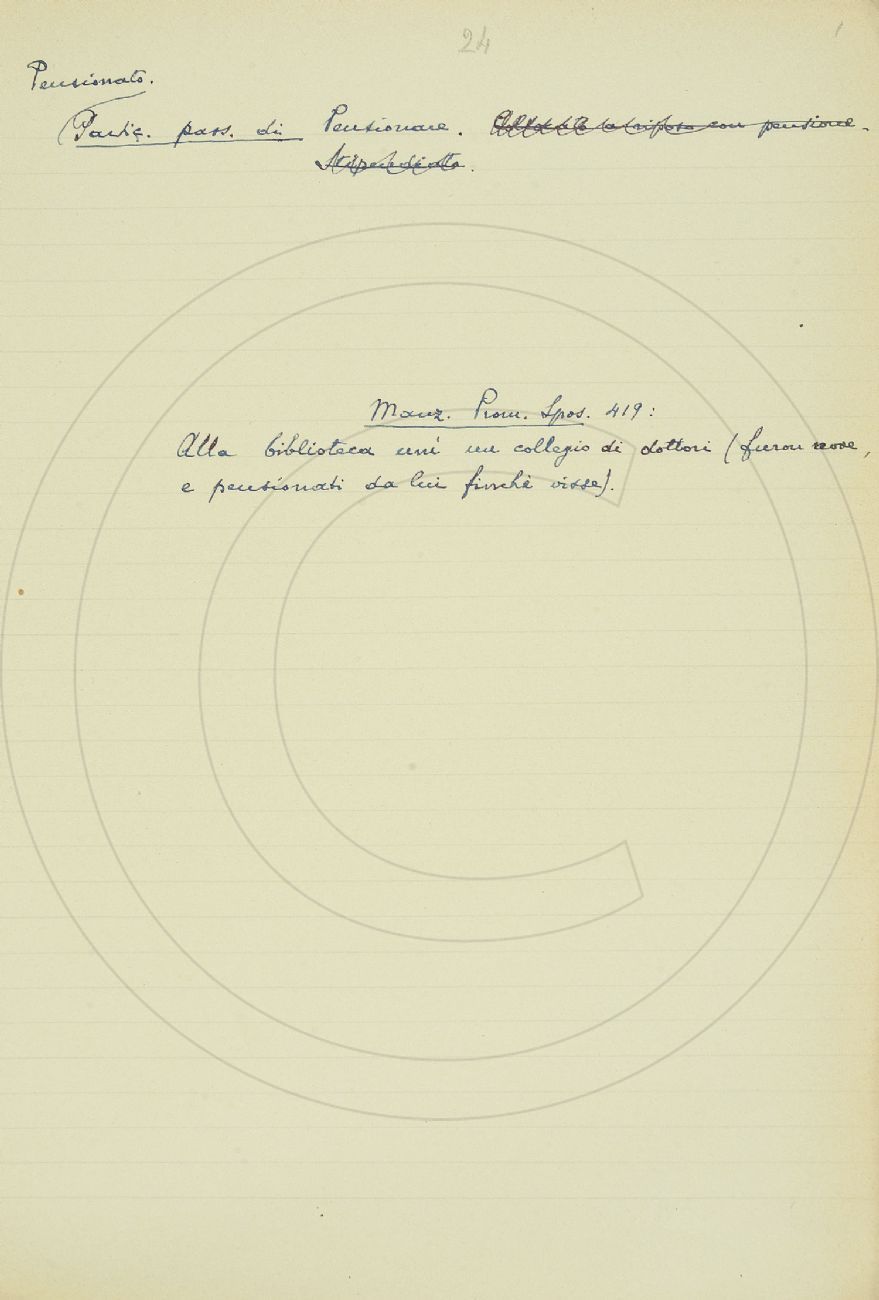 24
Pensionato.
Partic. pass. di Pensionare. Collocato a riposo con pensione.
Stipendiato.
Manz. Prom. Spos. 419:
Alla biblioteca uni un collegio di dottori (furon nove,
e pensionati da lui finchè visse).